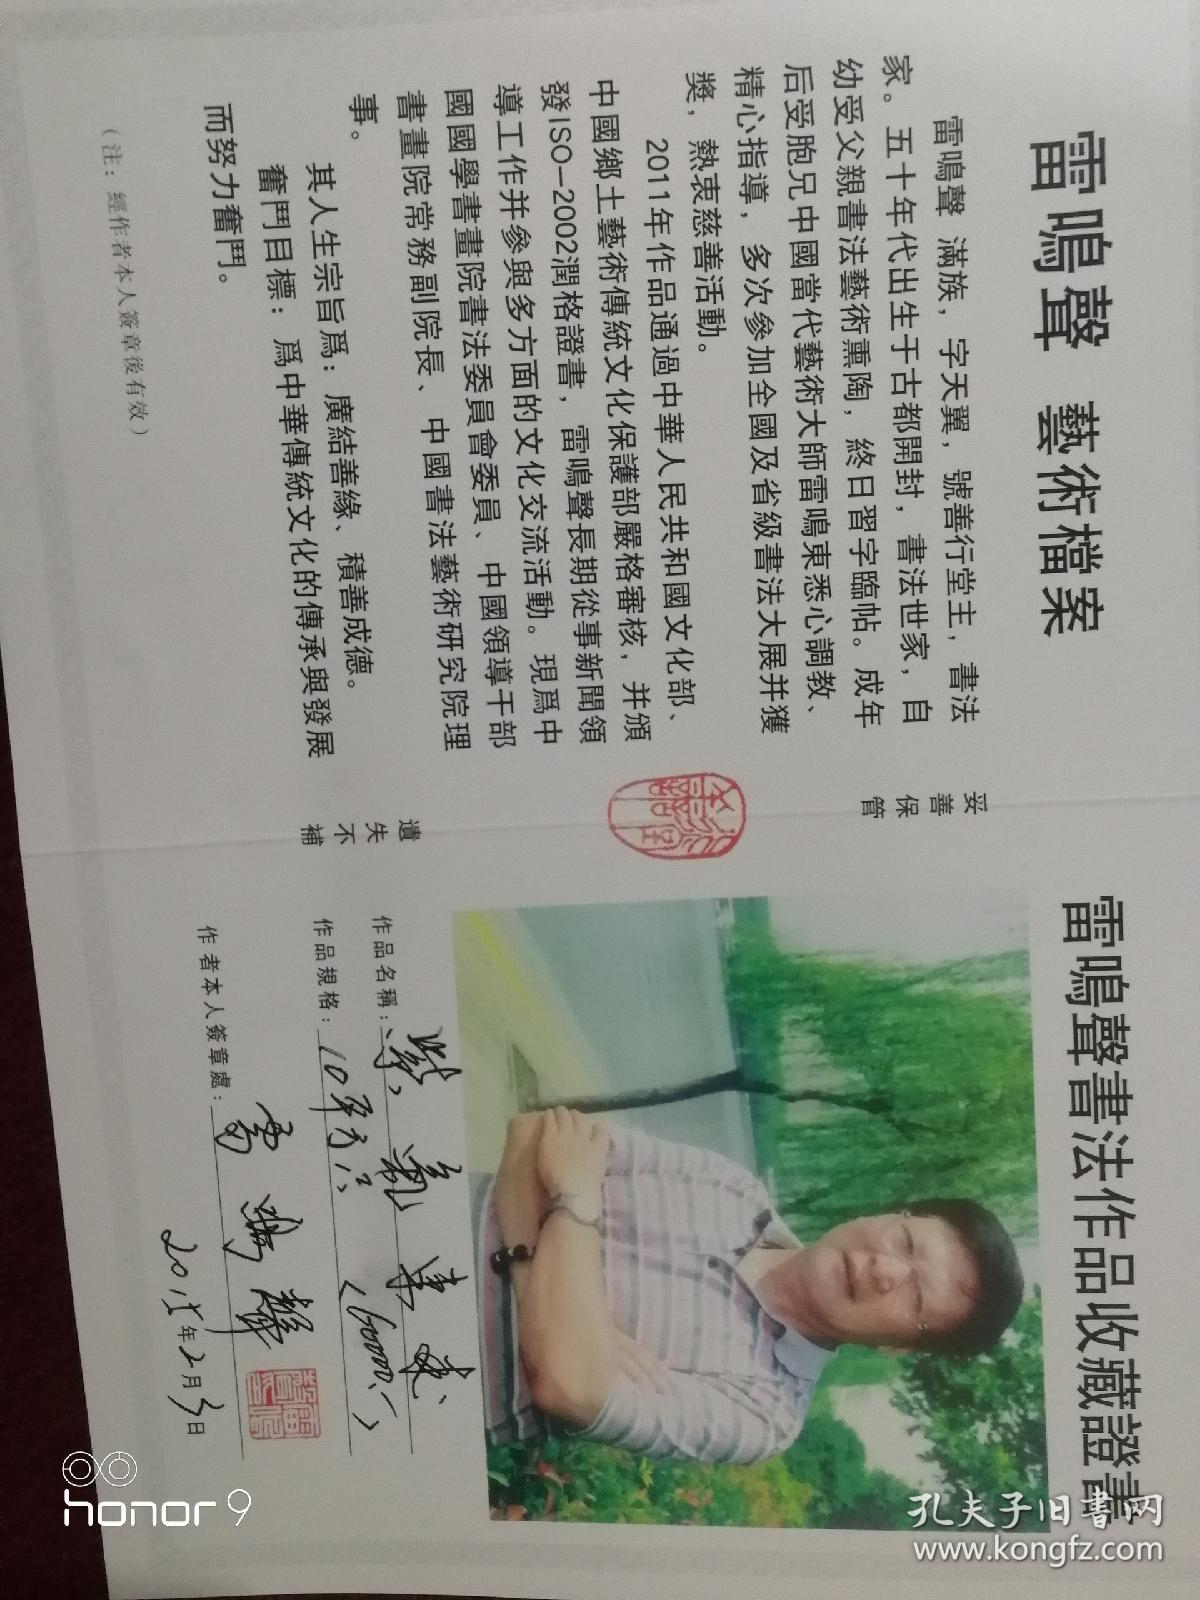 雷鳴聲 藝術檔案
雷鳴聲 滿族，字天翼，號善行堂主，書法
家。五十年代出生于古都開封，書法世家，自
幼受父親書法藝術熏陶，終日習字臨帖。成年
后受胞兄中國當代藝術大師雷鳴東悉心調教、
精心指導，多次參加全國及省級書法大展并獲
獎，熱衷慈善活動。
2011年作品通過中華人民共和國文化部、
中國鄉土藝術傳統文化保護部嚴格審核，并頒
發ISO-2002潤格證書，雷鳴聲長期從事新聞領
導工作并參與多方面的文化交流活動。現爲中
國國學書畫院書法委員會委員、中國領導干部
書畫院常務副院長、中國書法藝術研究院理
事。
其人生宗旨爲：廣結善緣、積善成德。
奮鬥目標：爲中華傳統文化的傳承與發展
而努力奮鬥。
（注：經作者本人簽章後有效）
妥善保管
遺失不補
雷鳴聲書法作品收藏證書
作品名稱：紫氣東來
作品規格：10平方尺
作者本人簽章處：雷鳴聲
2015年2月3日
honor 9
孔夫子旧书网
www.kongfz.com